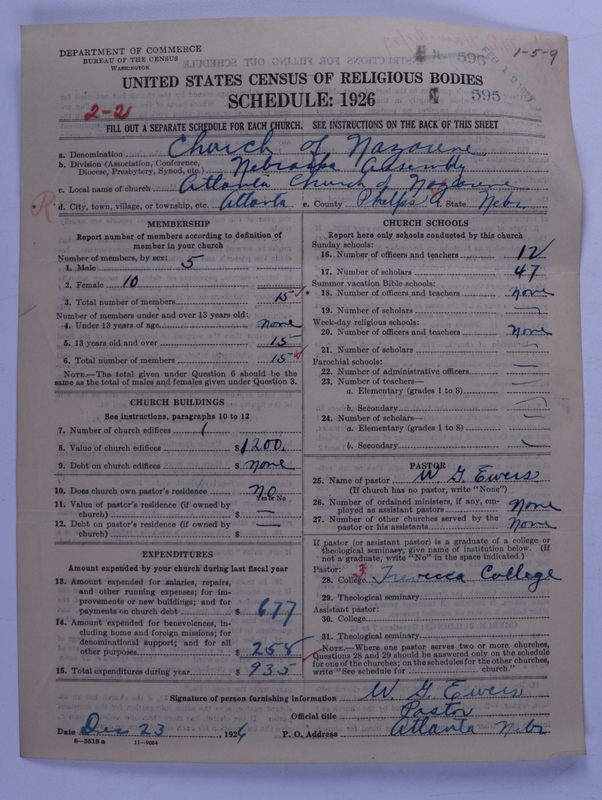 DEPARTMENT OF COMMERCE
BUREAU OF THE CENSUS
WASHINGTON
596
1-5-9
UNITED STATES CENSUS OF RELIGIOUS BODIES
SCHEDULE: 1926
595
2-2
FILL OUT A SEPARATE SCHEDULE FOR EACH CHURCH. SEE INSTRUCTIONS ON THE BACK OF THIS SHEET
a. Denomination Church of Nazarene
b. Division (Association, Conference, Diocese, Presbytery, Synod, etc.) Nebraska Assembly
c. Local name of church Atlanta Church of Nazarene
R d. City, town, village, or township, etc. Atlanta e. County Phelps State Nebr
MEMBERSHIP
Report number of members according to definition of
member in your church
Number of members, by sex:
1. Male 5
2. Female 10
3. Total number of members 15
Number of members under and over 13 years old:
4. Under 13 years of age none
5. 13 years old and over 15
6. Total number of members 15
NOTE.—The total given under Question 6 should be
same as the total of males and females given under Question 3.
CHURCH BUILDINGS
See instructions, paragraphs 10 to 12
7. Number of church edifices 1
8. Value of church edifices $ 1200.
9. Debt on church edifices $ none
10. Does church own pastor's residence no
Yes or No
11. Value of pastor's residence (if owned by
church) $ —
12. Debt on pastor's residence (if owned by
church) $ —
EXPENDITURES
Amount expended by your church during last fiscal year
13. Amount expended for salaries, repairs,
and other running expenses; for im-
provements or new buildings; and for
payments on church debt $ 677
14. Amount expended for benevolences, in-
cluding home and foreign missions; for
denominational support; and for all
other purposes $ 258
15. Total expenditures during year $ 935
CHURCH SCHOOLS
Report here only schools conducted by this church
Sunday schools:
16. Number of officers and teachers 12
17. Number of scholars 47
Summer vacation Bible schools:
18. Number of officers and teachers none
19. Number of scholars —
Week-day religious schools:
20. Number of officers and teachers none
21. Number of scholars —
Parochial schools:
22. Number of administrative officers —
23. Number of teachers—
a. Elementary (grades 1 to 8) —
b. Secondary —
24. Number of scholars—
a. Elementary (grades 1 to 8) —
b. Secondary —
PASTOR
25. Name of pastor W. G. Ewers
(If church has no pastor, write "None")
26. Number of ordained ministers, if any, em-
ployed as assistant pastors none
27. Number of other churches served by the
pastor or his assistants none
If pastor (or assistant pastor) is a graduate of a college or
theological seminary, give name of institution below. (If
not a graduate, write "No" in the space indicated.)
Pastor: 3
28. College Trevecca College
29. Theological seminary
Assistant pastor:
30. College
31. Theological seminary
NOTE.—Where one pastor serves two or more churches,
Questions 28 and 29 should be answered only on the schedule
for one of the churches; on the schedules for the other churches,
write "See schedule for church."
Signature of person furnishing information W G Ewers
Official title Pastor
Date Dec 23, 1926 P. O. Address Atlanta Nebr
8—5518 a 11—9054